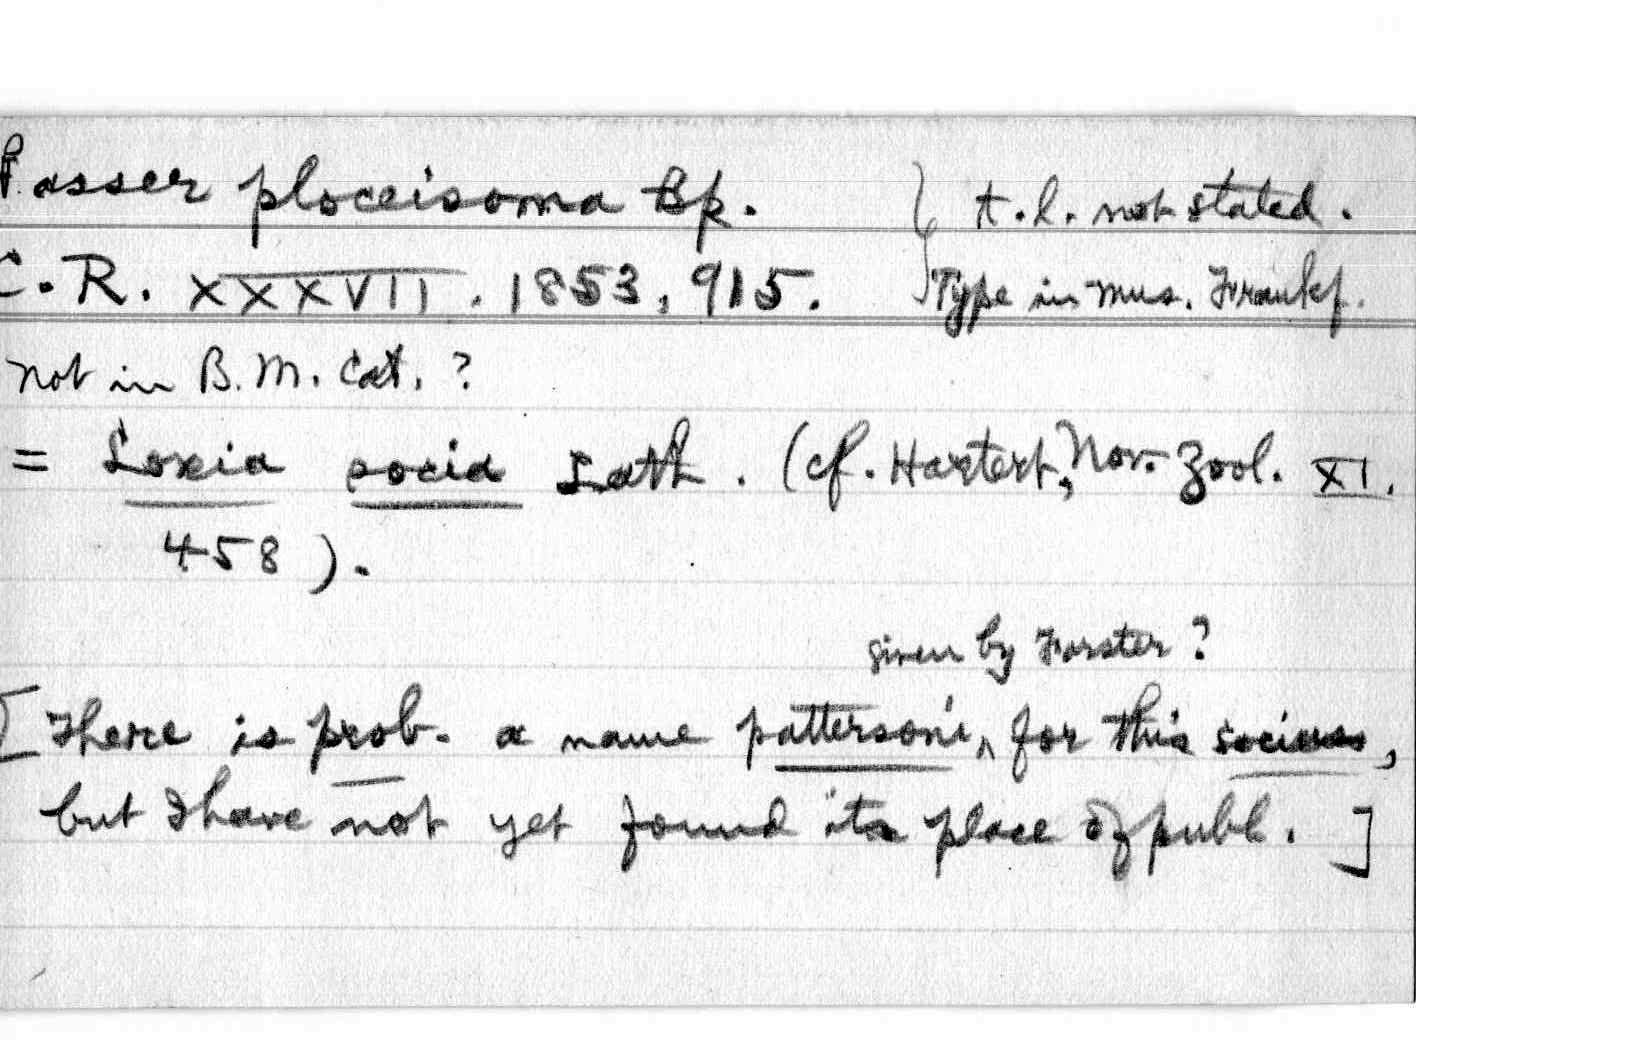 Passer ploceisoma Bp. } t.l. not stated.
C.R. XXXVII. 1853, 915. } Type in Mus. Frankf.
not in B.M. Cat. ?
= Loxia socia Lath. (cf. Hartert, Nov. Zool. XI.
458).
given by Forster ?
[There is prob. a name pattersoni ‸ for this socius,
but I have not yet found its place of publ.]